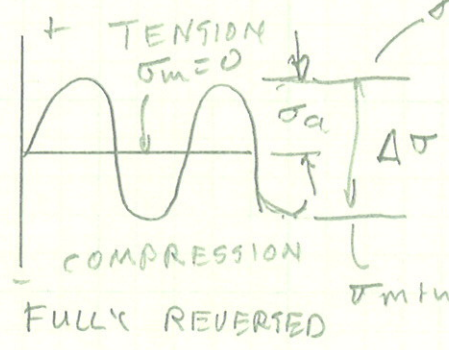 + TENSION
σm=0
σa
Δσ
COMPRESSION
σmin
-
FULLY REVERTED